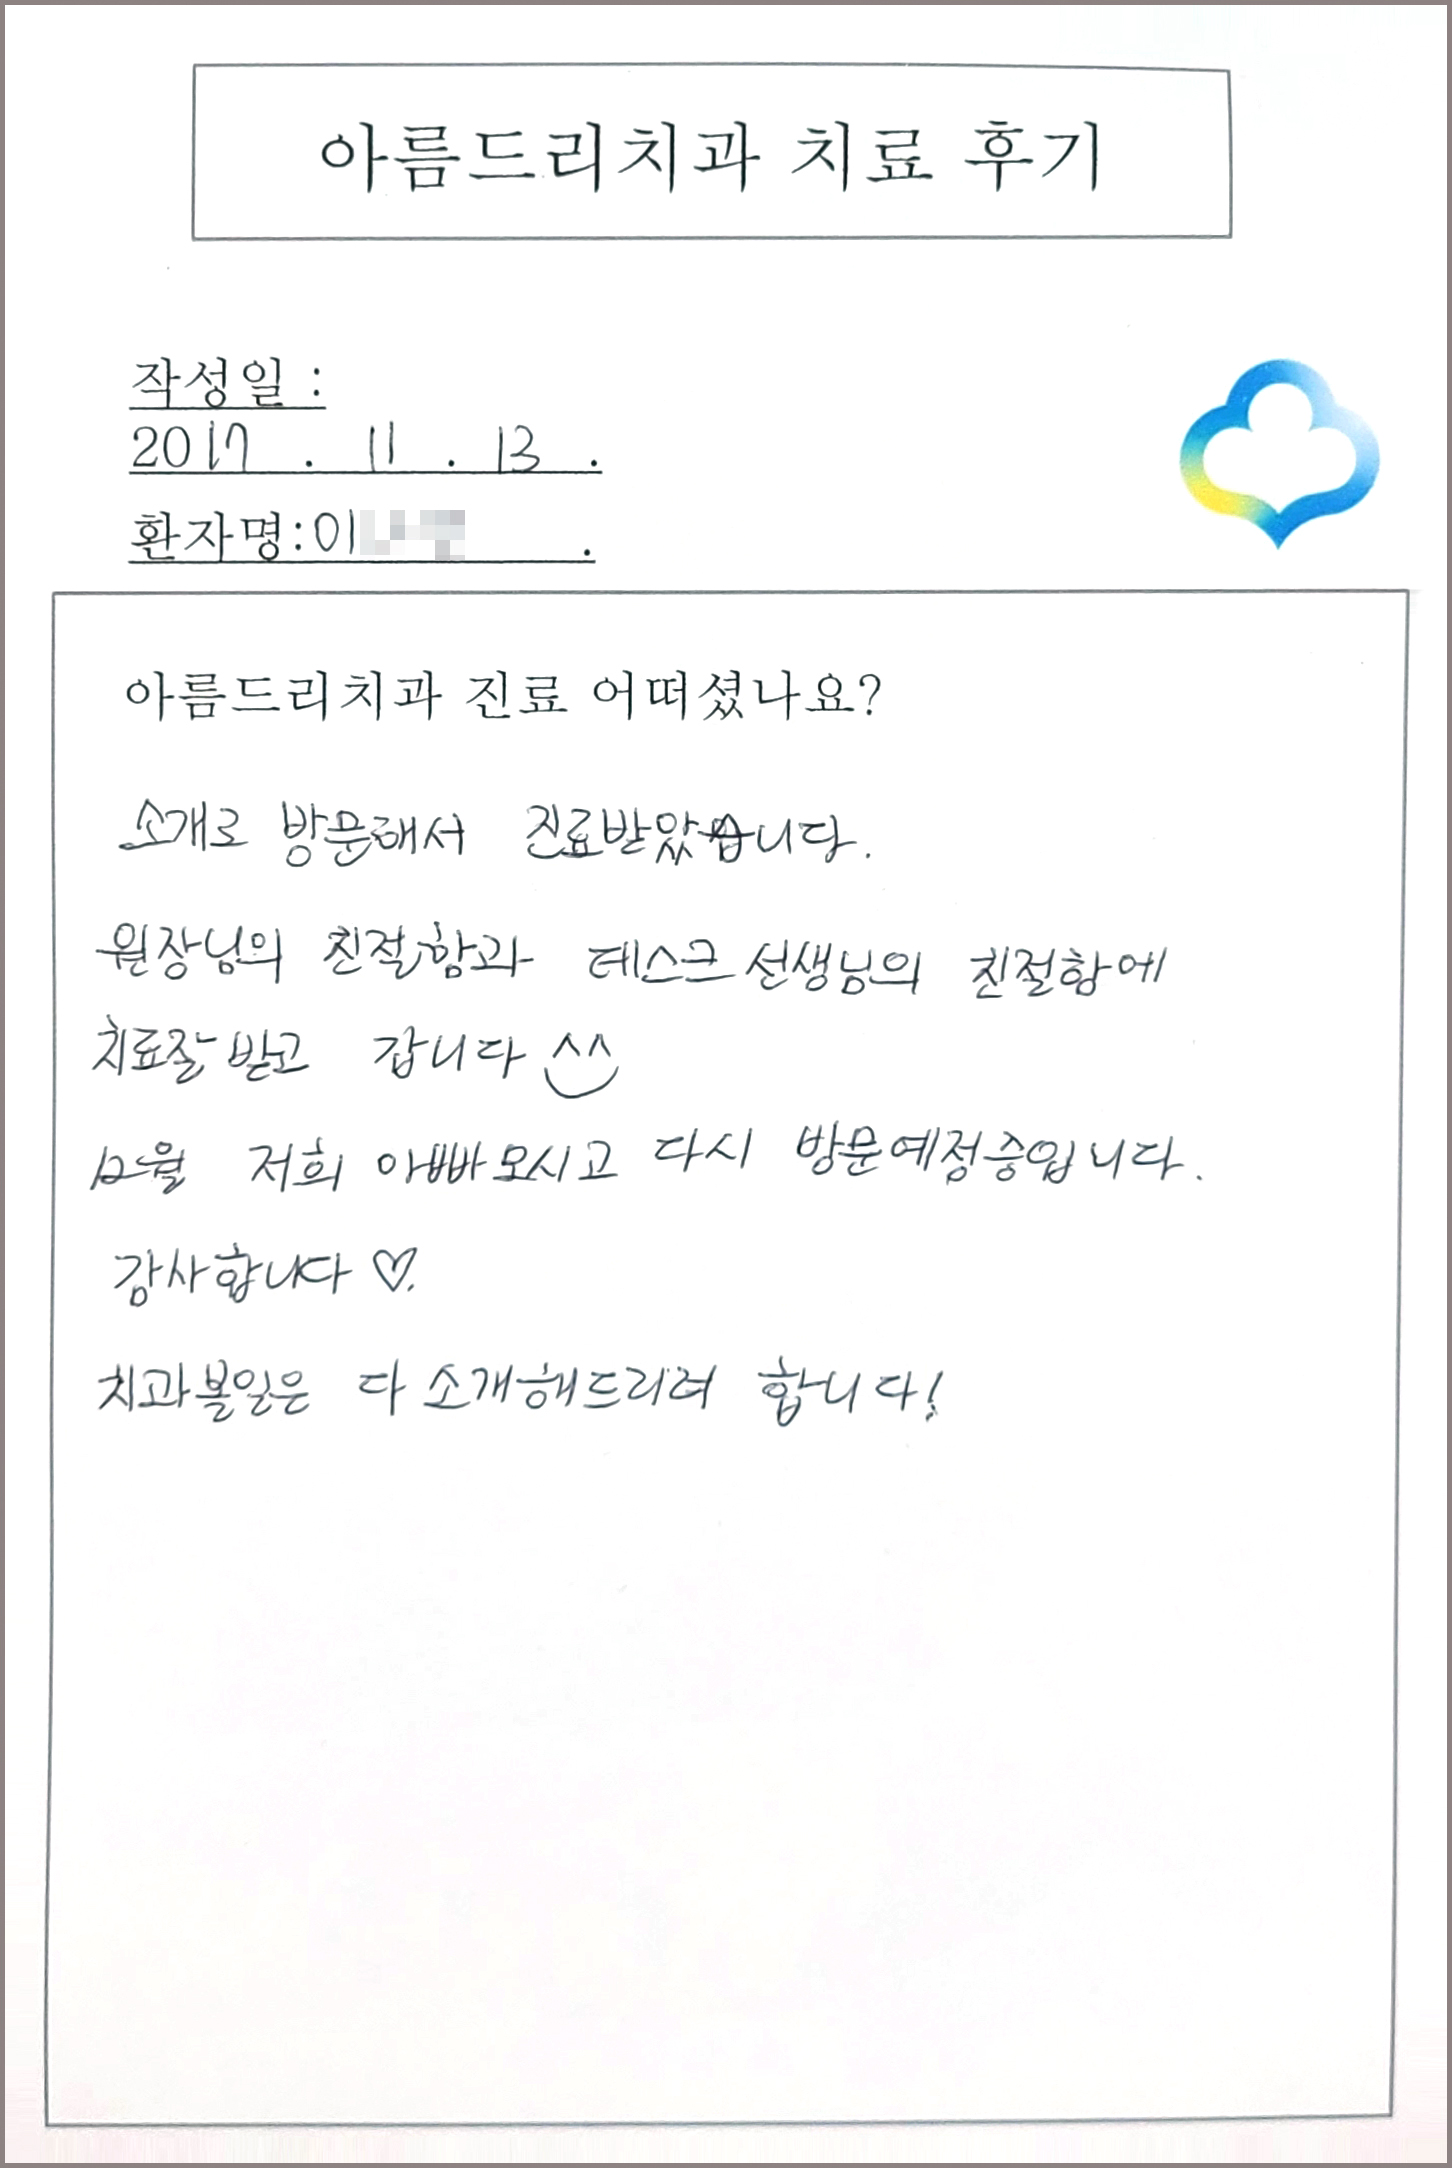 아름드리치과 치료 후기
작성일 :
2017 . 11 . 13 .
환자명:이 .
아름드리치과 진료 어떠셨나요?
소개로 방문해서 진료받았습니다.
원장님의 친절함과 데스크 선생님의 친절함에
치료잘 받고 갑니다 ^^
12월 저희 아빠모시고 다시 방문예정중입니다.
감사합니다 ♡.
치과볼일은 다 소개해드리려 합니다!